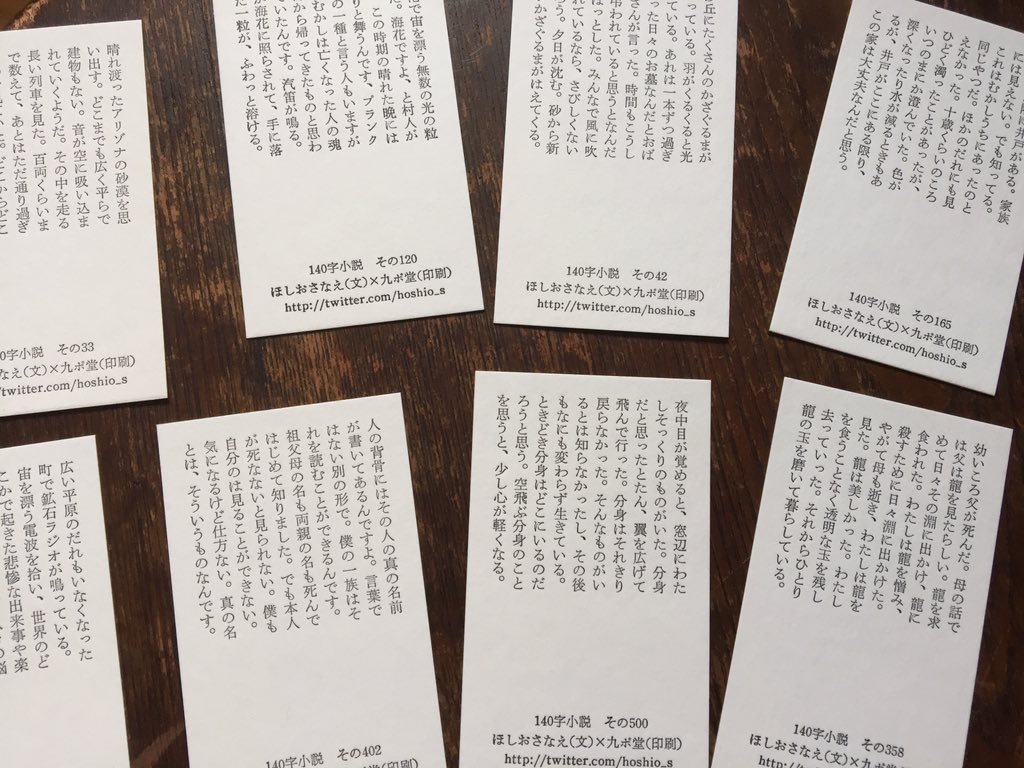 晴れ渡ったアリゾナの砂漠を思
い出す。どこまでも広く平らで
建物もない。音が空に吸い込ま
れていくようだ。その中を走る
長い列車を見た。百両くらいま
で数えて、あとはただ通り過ぎ
字小説 その33
なえ(文)×九ポ堂(印刷)
/twitter.com/hoshio_s
で宙を漂う無数の光の粒
。海花ですよ、と村人が
この時期の晴れた晩には
りと舞うんです、プランク
の一種と言う人もいますが
むかしは亡くなった人の魂
から帰ってきたものと思わ
ていたんです。汽笛が鳴る。
が海花に照らされて、手に落
た一粒が、ふわっと溶ける。
140字小説 その120
ほしおさなえ(文)×九ポ堂(印刷)
http://twitter.com/hoshio_s
丘にたくさんのかざぐるまが
っている。羽がくるくると光
ている。あれは一本ずつ過ぎ
った日々のお墓なんだとおば
さんが言った。時間もこうし
弔われていると思うとなんだ
ほっとした。みんなで風に吹
れているなら、さびしくない
う。夕日が沈む。砂から新
かざぐるまがはえてくる。
140字小説 その42
ほしおさなえ(文)×九ポ堂(印刷)
http://twitter.com/hoshio_s
に井戸がある。家族
には見えない。でも知ってる。
これはむかしうちにあったのと
同じやつだ。ほかのだれにも見
えなかった。十歳くらいのころ
ひどく濁ったことがあったが、
いつのまにか澄んでいた。色が
深くなったり水が減るときもあ
るが、井戸がここにある限り、
この家は大丈夫なんだと思う。
140字小説 その165
ほしおさなえ(文)×九ポ堂(印刷)
http://twitter.com/hoshio_s
広い平原のだれもいなくなった
町で鉱石ラジオが鳴っている。
宙を漂う電波を拾い、世界のど
こかで起きた悲惨な出来事や楽
人の背骨にはその人の真の名前
が書いてあるんですよ。言葉で
はない別の形で。僕の一族はそ
れを読むことができるんです。
祖父母の名も両親の名も死んで
はじめて知りました。でも本人
が死なないと見られない。僕も
自分のは見ることができない。
気になるけど仕方ない。真の名
とは、そういうものなんです。
140字小説 その402
夜中目が覚めると、窓辺にわた
しそっくりのものがいた。分身
だと思ったとたん、翼を広げて
飛んで行った。分身はそれきり
戻らなかった。そんなものがい
るとは知らなかったし、その後
もなにも変わらず生きている。
ときどき分身はどこにいるのだ
ろうと思う。空飛ぶ分身のこと
を思うと、少し心が軽くなる。
140字小説 その500
ほしおさなえ(文)×九ポ堂(印刷)
http://twitter.com/hoshio_s
幼いころ父が死んだ。母の話で
は父は龍を見たらしい。龍を求
めて日々その淵に出かけ、龍に
食われた。わたしは龍を憎み、
殺すために日々淵に出かけた。
やがて母も逝き、わたしは龍を
見た。龍は美しかった。わたし
を食うことなく透明な玉を残し
去っていった。それからひとり
龍の玉を磨いて暮らしている。
140字小説 その358
ほしおさなえ(文)×九ポ堂(印刷)
http://twitter.com/hoshio_s